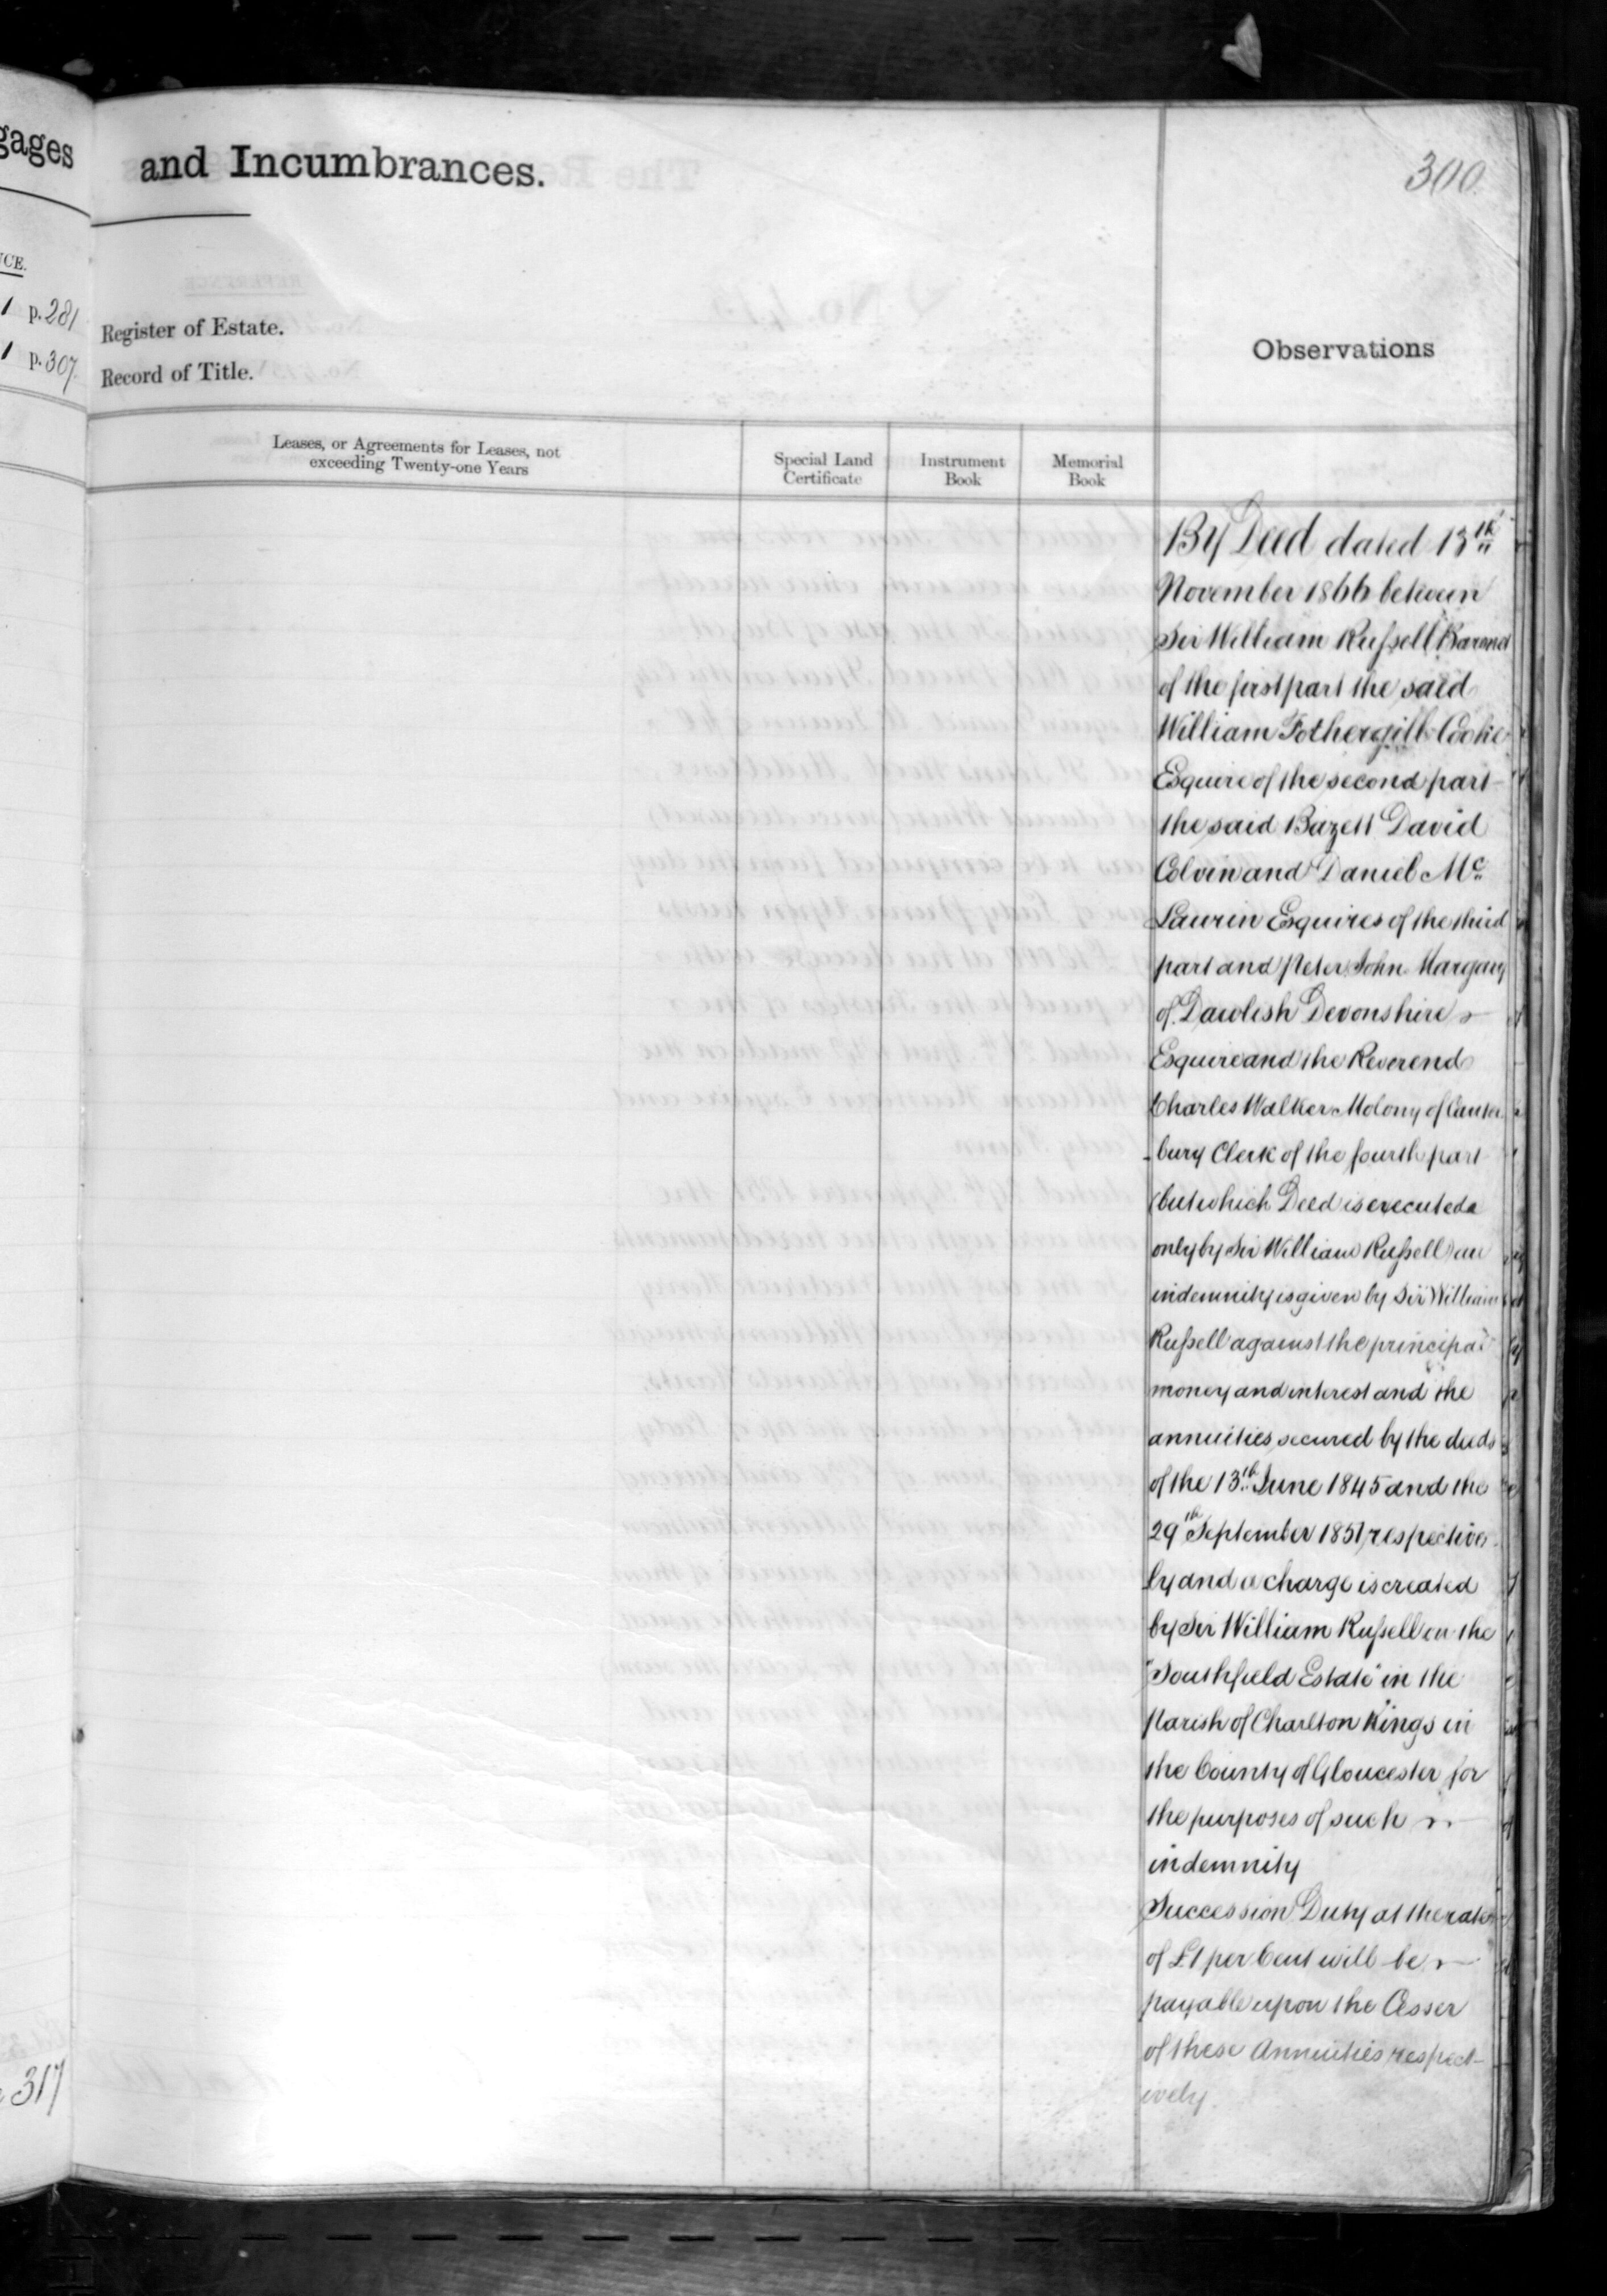 gages
CE.
1 p. 281
1 p. 307
317
and Incumbrances.
300
Register of Estate.
Record of Title.
Observations
Leases, or Agreements for Leases, not
exceeding Twenty-one Years
Special Land
Certificate
Instrument
Book
Memorial
Book
By Deed dated 13th
November 1866 between
Sir William Russell Baronet
of the first part the said
William Fothergill Cooke
Esquire of the second part
the said Bazett David
Colvin and Daniel Mc
Laurin Esquires of the third
part and Peter John Margary
of Dawlesh Devonshire
Esquire and the Reverend
Charles Walker Molony of Canter
-bury Clerk of the fourth part
(but which Deed is executed
only by Sir William Russell) an
indemnity is given by Sir William
Russell against the principal
money and interest and the
annuities secured by the deeds
of the 13th June 1845 and the
29th September 1851 respective
ly and a charge is created
by Sir William Russell on the
"Southfield Estate" in the
Parish of Charlton Kings in
the County of Gloucester for
the purposes of such
indemnity
Succession Duty at the rate
of £1 per Cent will be
payable upon the Cesser
of these Annuities respect-
ively.